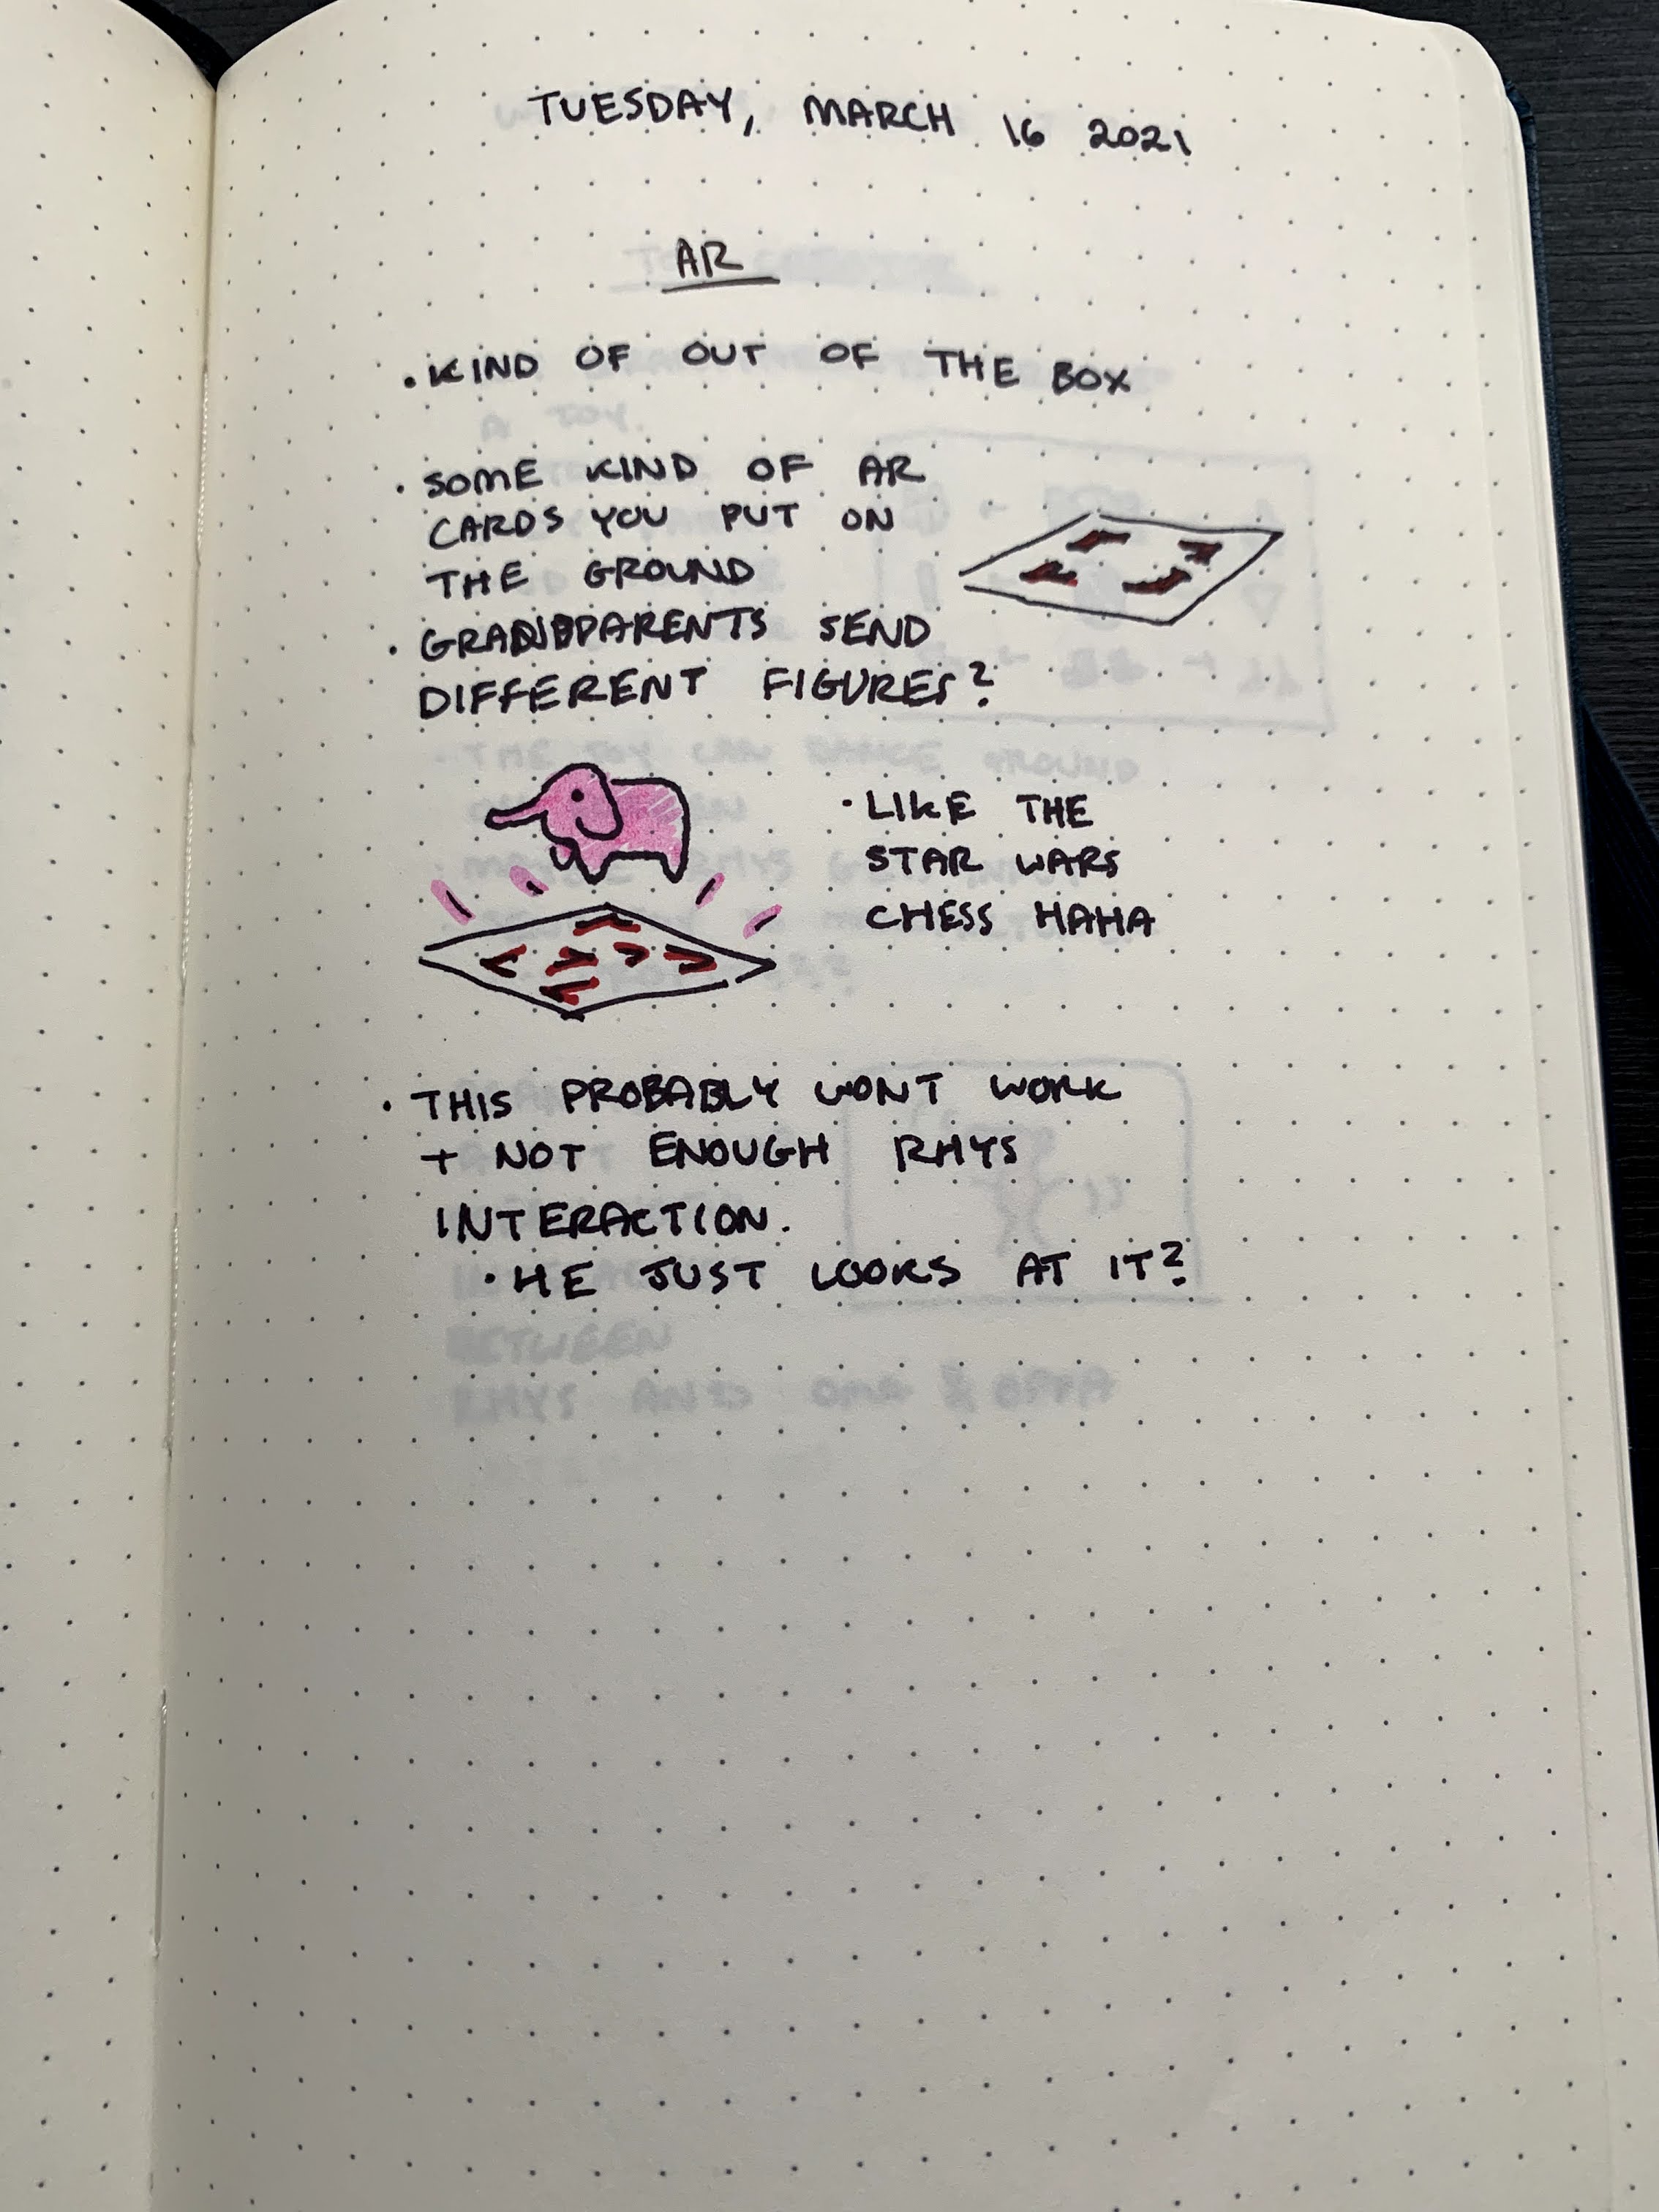 TUESDAY, MARCH 16 2021
AR
• KIND OF OUT OF THE BOX
• SOME KIND OF AR
CARDS YOU PUT ON
THE GROUND
• GRANDPARENTS SEND
DIFFERENT FIGURES?
• LIKE THE
STAR WARS
CHESS HAHA
• THIS PROBABLY WONT WORK
+ NOT ENOUGH RHYS
INTERACTION.
• HE JUST LOOKS AT IT?
BETWEEN
RHYS AND OMA & OPPA